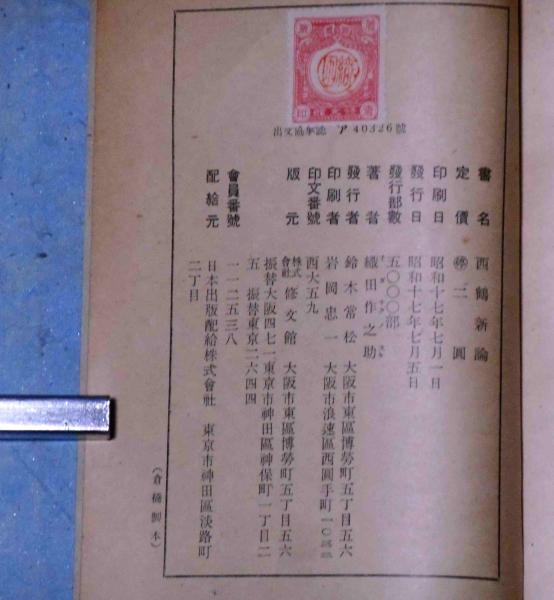 出文協承認 ア 40326號
書名 西鶴新論
定價 ㊕三圓
印刷日 昭和十七年七月一日
發行日 昭和十七年七月五日
發行部數 五〇〇〇部
著者 織田作之助
發行者 鈴木常松 大阪市東區博勞町五丁目五六
印刷者 岩岡忠一 大阪市浪速區西圓手町一〇三二
印文番號 西大五九
版元 株式會社 修文館 大阪市東區博勞町五丁目五六
振替大阪四七一 東京市神田區神保町一丁目二
五 振替東京二六四四
會員番號 一一二五三八
配給元 日本出版配給株式會社 東京市神田區淡路町
二丁目
(倉橋製本)